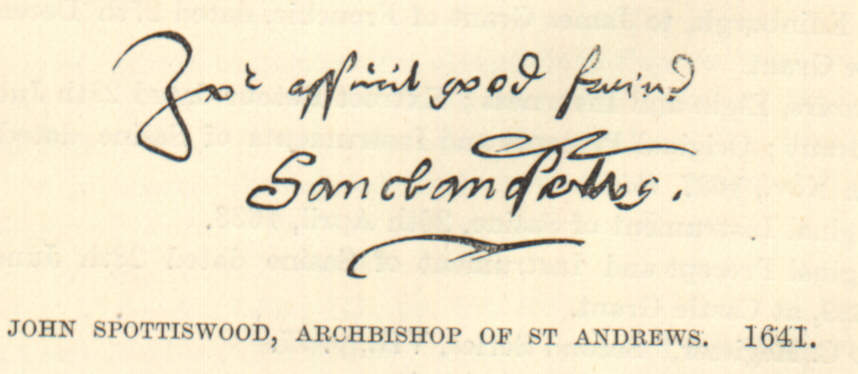 Yor assurit good freind
Sanctandrews.
JOHN SPOTTISWOOD, ARCHBISHOP OF ST ANDREWS. 1641.